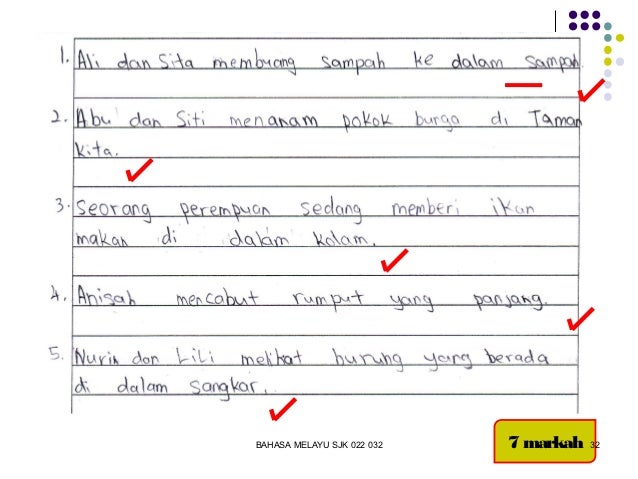 1. Ali dan Sita membuang sampah ke dalam sampah.
2. Abu dan Siti menanam pokok burga di Taman
kita.
3. Seorang perempuan sedang memberi ikan
makan di dalam kolam.
4. Anisah mencabut rumput yang panjang.
5. Nurin dan Lili melihat burung yang berada
di dalam sangkar.
BAHASA MELAYU SJK 022 032
7 markah 32